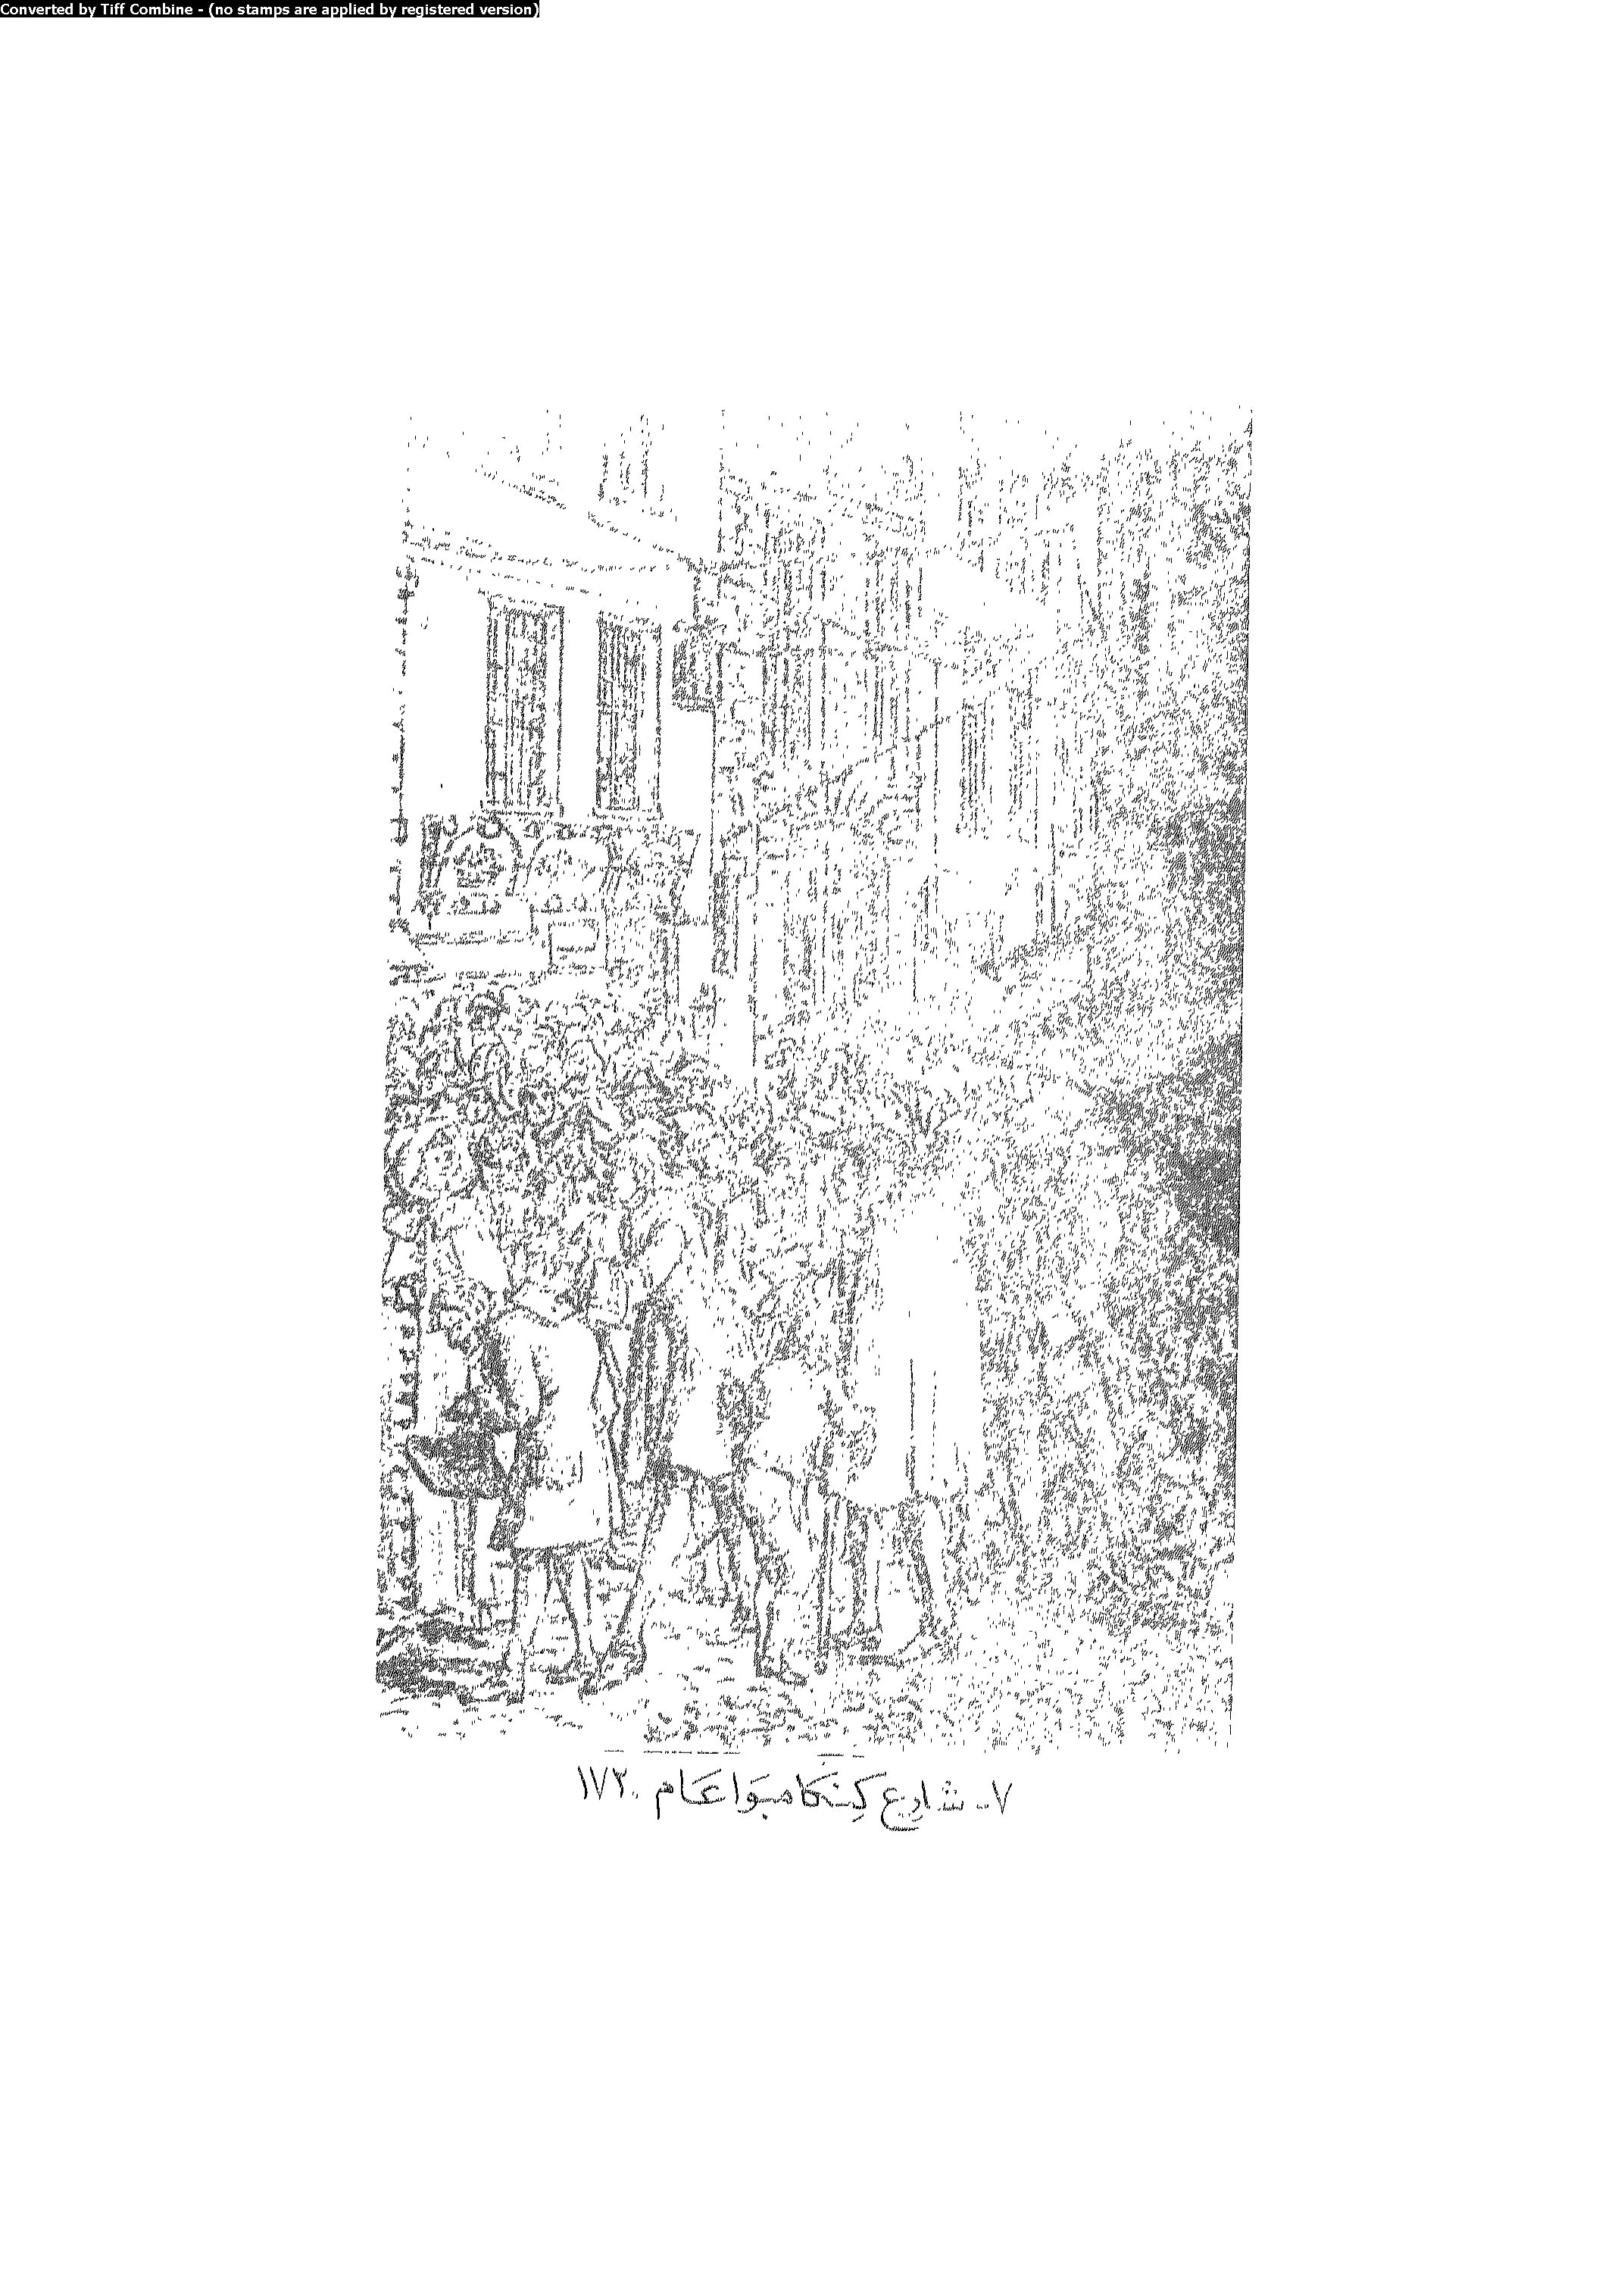 Converted by Tiff Combine - (no stamps are applied by registered version)
٧- شارع كِنكَامبوَا عَام ١٧٢٠